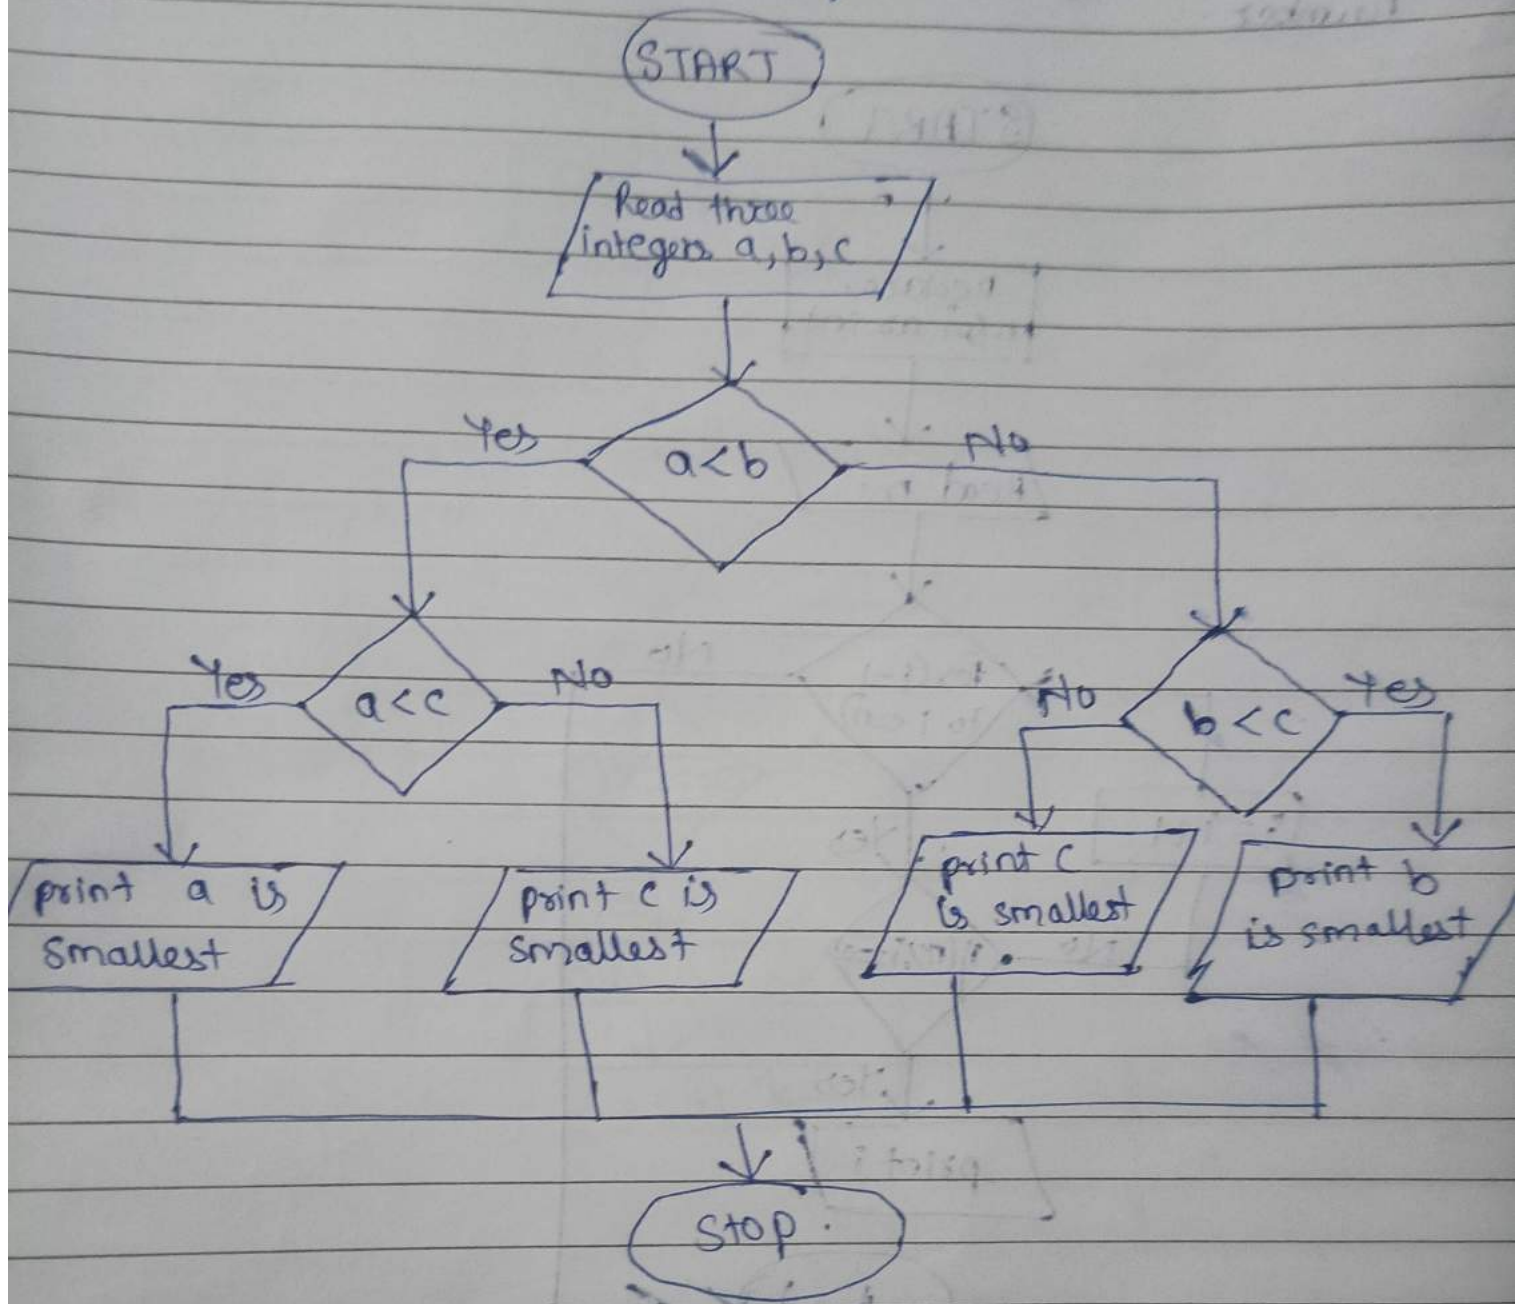 START
Read three
integers a, b, c
Yes
a<b
No
Yes
a<c
No
No
b<c
Yes
print a is
smallest
print c is
smallest
print C
is smallest
print b
is smallest
Stop